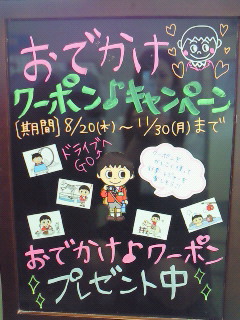 おでかけ
クーポン♪キャンペーン
[期間] 8/20(木)～11/30(月)まで
ドライブへ
GO!
おでかけ♪クーポン
プレゼント中